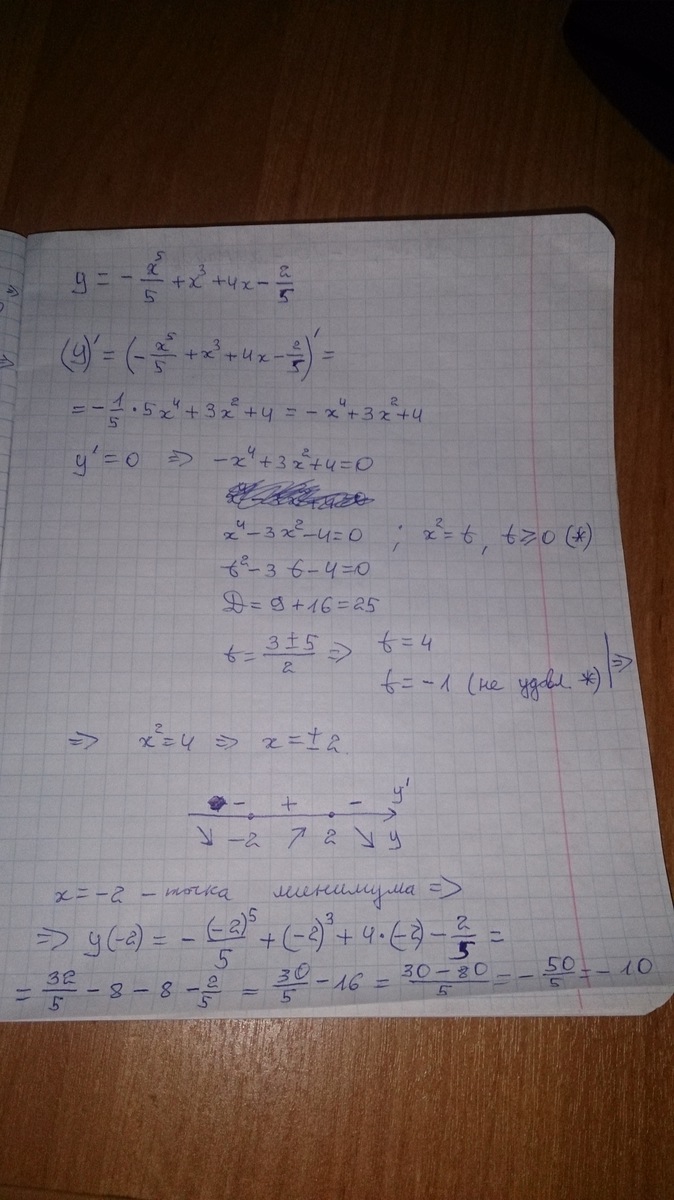 y = -x⁵/5 + x³ + 4x - 2/5
(y)' = (-x⁵/5 + x³ + 4x - 2/5)' =
= -1/5 · 5x⁴ + 3x² + 4 = -x⁴ + 3x² + 4
y' = 0 ⇒ -x⁴ + 3x² + 4 = 0
x⁴ - 3x² - 4 = 0 ; x² = t, t ⩾ 0 (*)
t² - 3t - 4 = 0
D = 9 + 16 = 25
t = (3 ± 5)/2 ⇒ t = 4
t = -1 (не удовл. *) | ⇒
⇒ x² = 4 ⇒ x = ± 2.
- + - y'
↘ -2 ↗ 2 ↘ y
x = -2 - точка минимума ⇒
⇒ y(-2) = -(-2)⁵/5 + (-2)³ + 4·(-2) - 2/5 =
= 32/5 - 8 - 8 - 2/5 = 30/5 - 16 = (30 - 80)/5 = -50/5 = -10